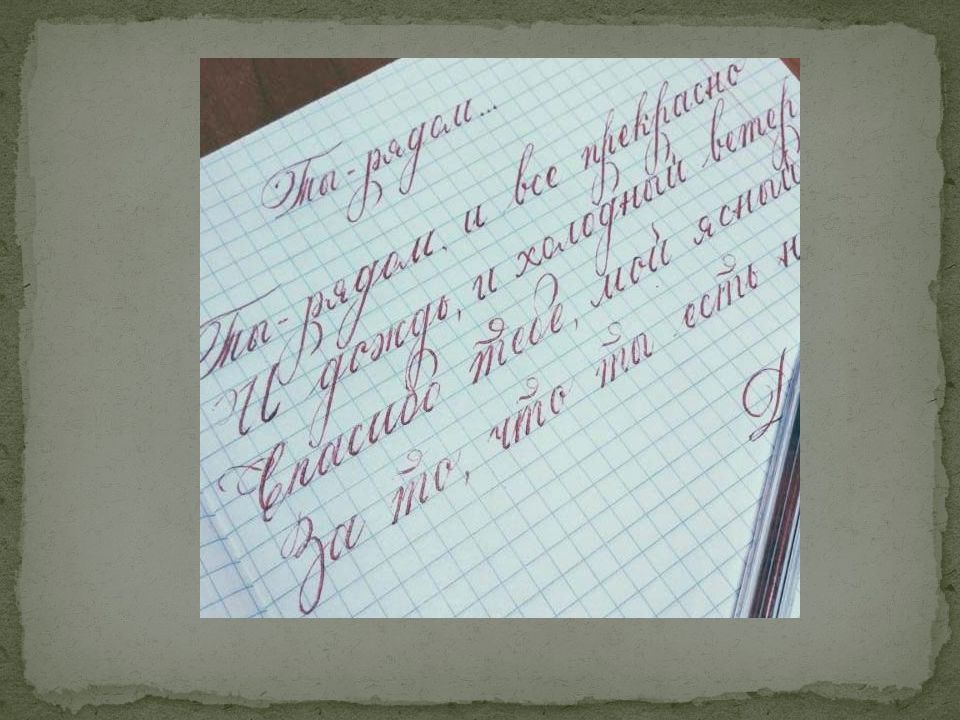 Ты-рядом...
Ты-рядом, и все прекрасно
И дождь, и холодный ветер
Спасибо тебе, мой ясный
За то, что ты есть н
Д